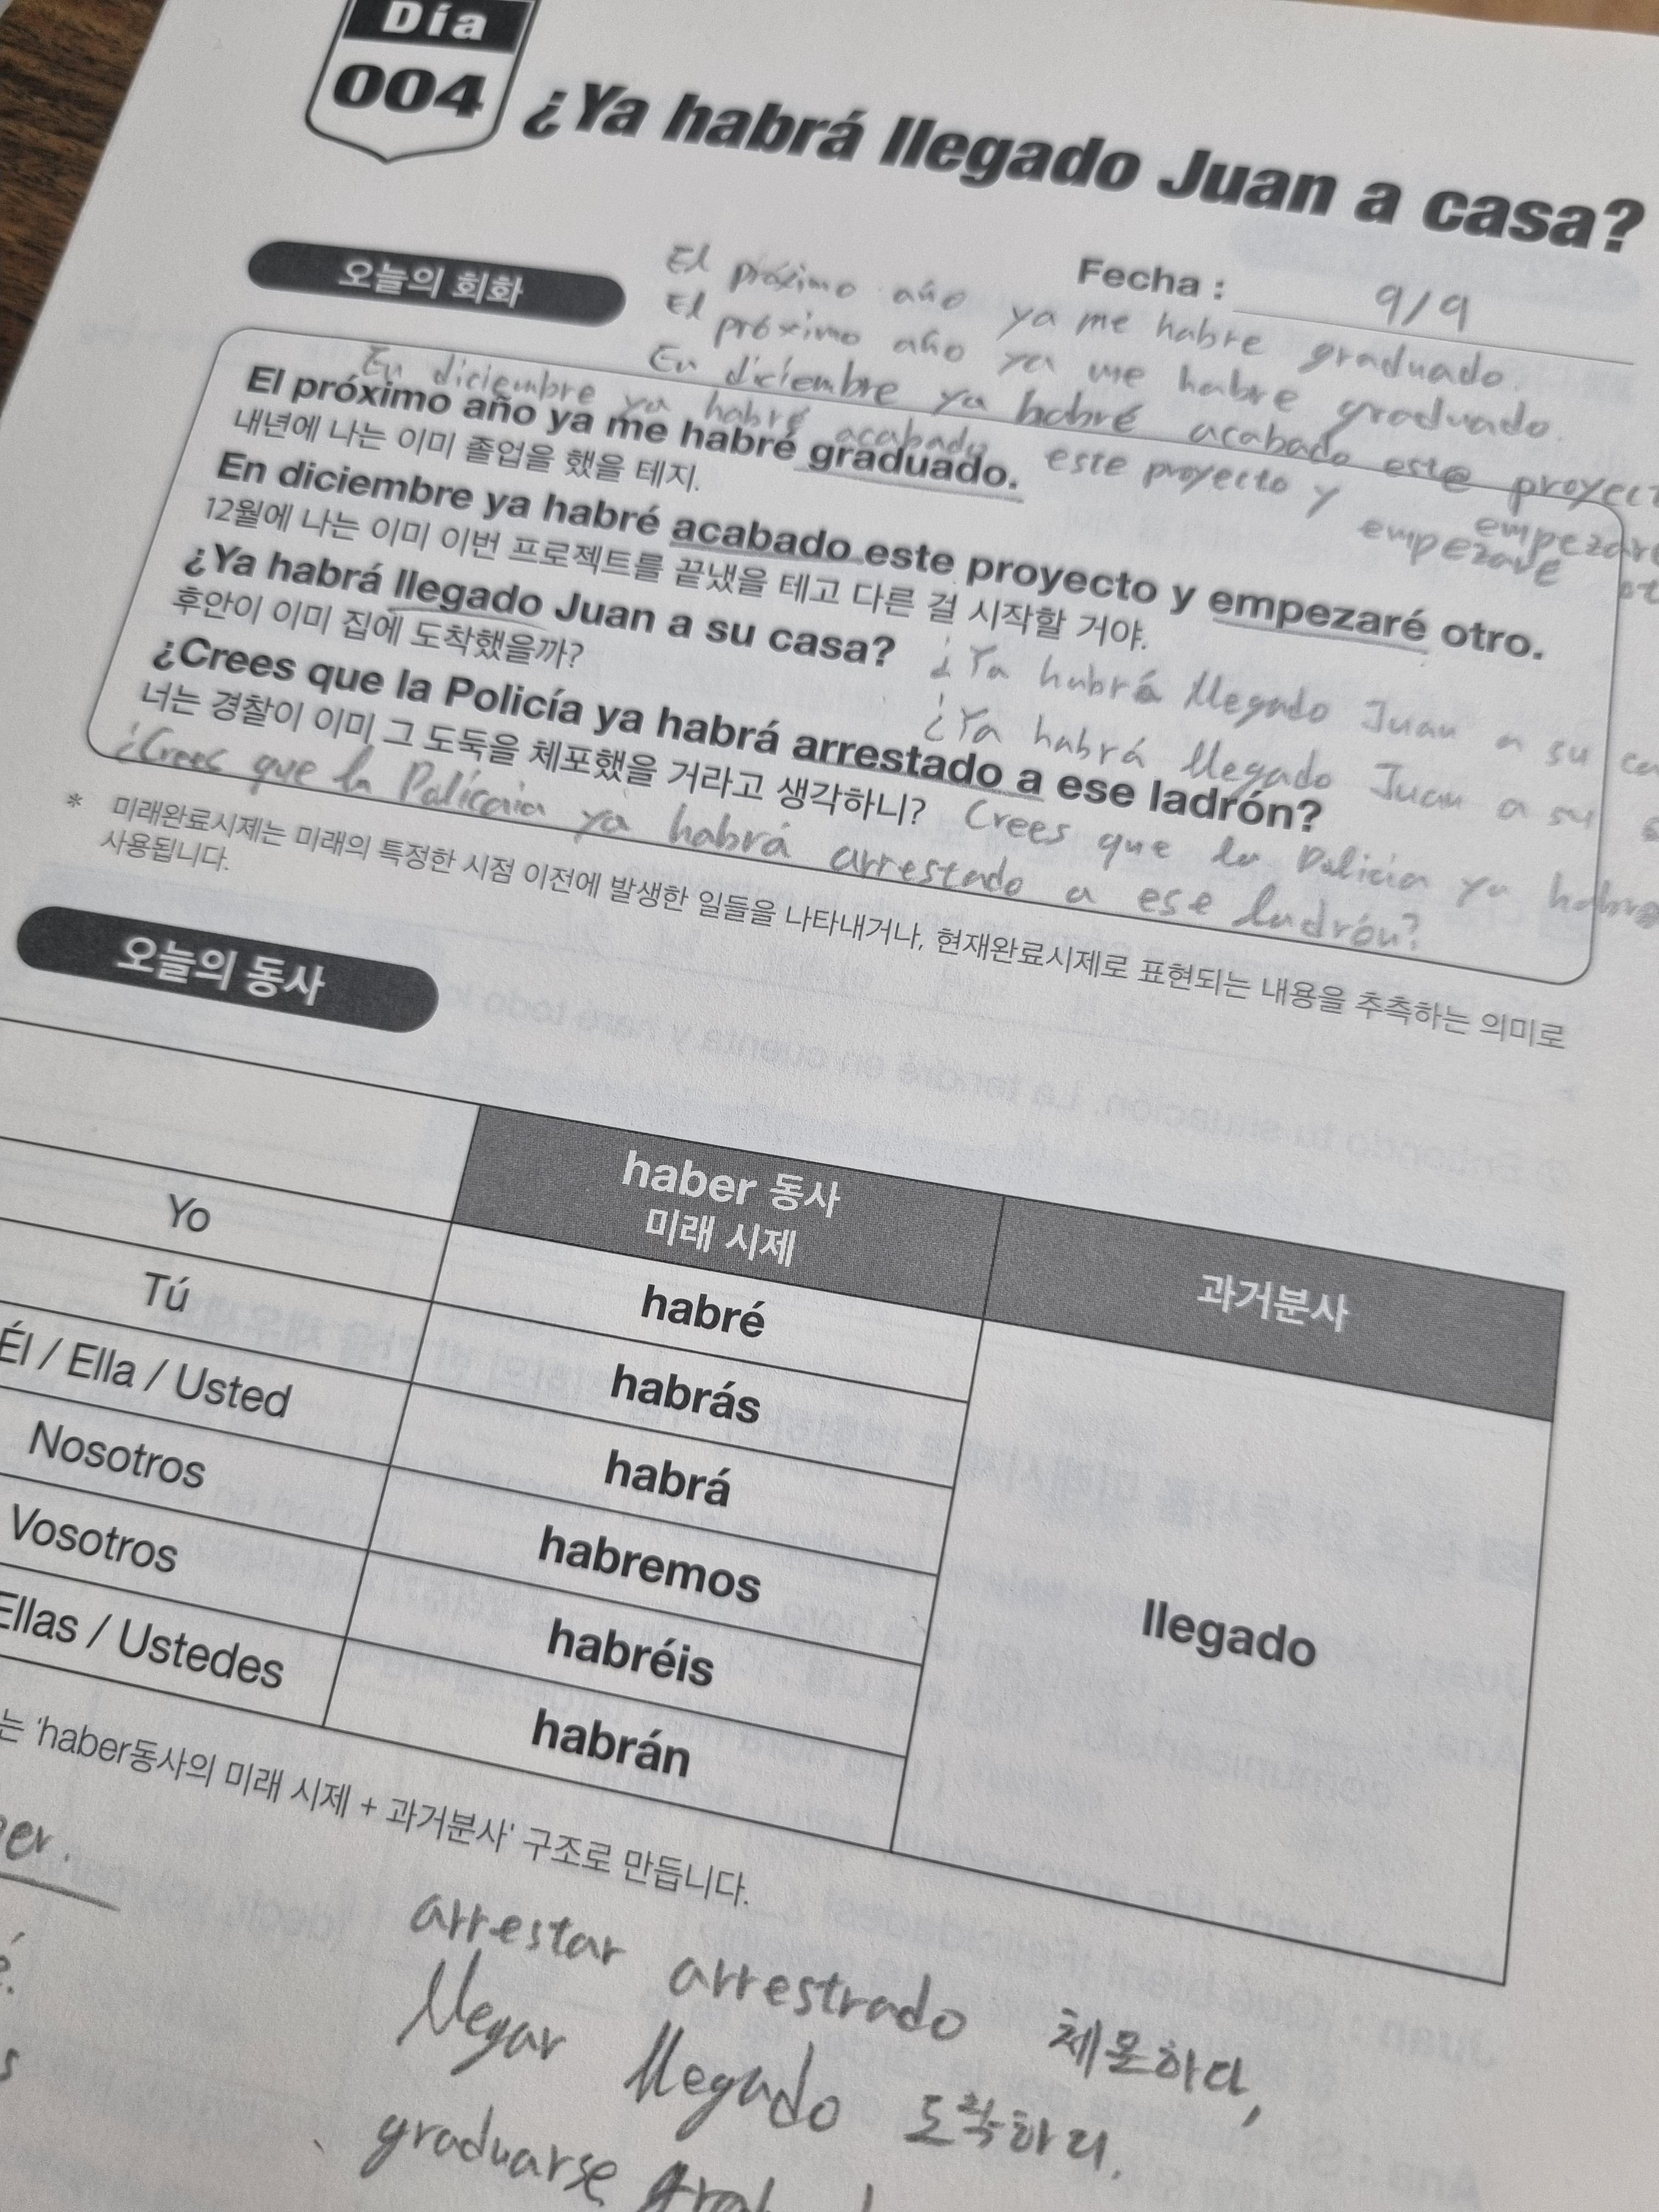 Día
004
¿Ya habrá llegado Juan a casa?
오늘의 회화
Fecha :
9/9
El próximo año ya me habre graduado.
El próximo año ya me habre graduado.
En diciembre ya habré acabado este
En diciembre ya habré acabado este proyecto y
empezaré
empezaré
El próximo año ya me habré graduado.
내년에 나는 이미 졸업을 했을 테지.
En diciembre ya habré acabado este proyecto y empezaré otro.
12월에 나는 이미 이번 프로젝트를 끝냈을 테고 다른 걸 시작할 거야.
¿Ya habrá llegado Juan a su casa?
후안이 이미 집에 도착했을까?
¿Ya habrá llegado Juan a su
¿Ya habrá llegado Juan a su
¿Crees que la Policía ya habrá arrestado a ese ladrón?
너는 경찰이 이미 그 도둑을 체포했을 거라고 생각하니?
Crees que la Policía ya
¿Crees que la ya habrá arrestado a ese ladrón?
* 미래완료시제는 미래의 특정한 시점 이전에 발생한 일들을 나타내거나, 현재완료시제로 표현되는 내용을 추측하는 의미로
사용됩니다.
오늘의 동사
haber 동사
미래 시제
과거분사
Yo
habré
Tú
habrás
Él / Ella / Usted
habrá
Nosotros
habremos
Vosotros
habréis
Ellas / Ustedes
habrán
llegado
는 'haber동사의 미래 시제 + 과거분사' 구조로 만듭니다.
arrestar arrestrado 체포하다,
llegar llegado 도착하다.
graduarse